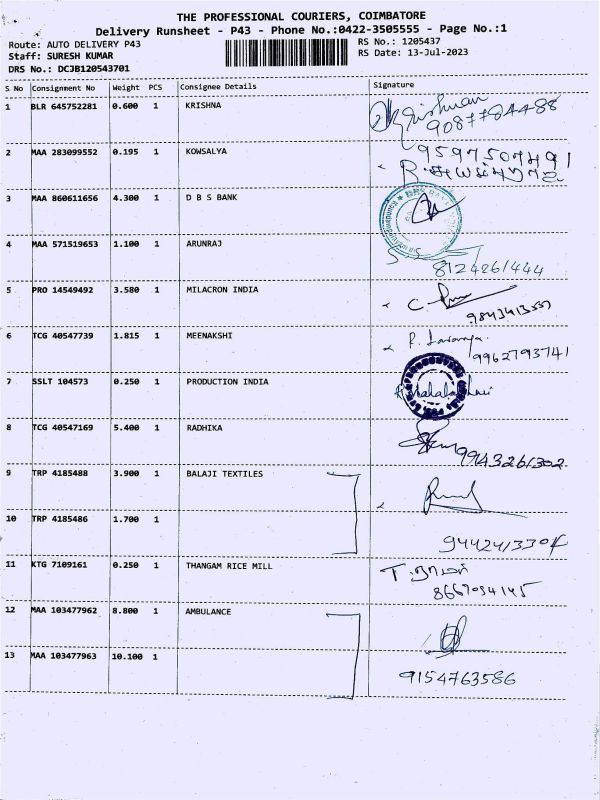 THE PROFESSIONAL COURIERS, COIMBATORE
Delivery Runsheet - P43 - Phone No.:0422-3505555 - Page No.:1
Route: AUTO DELIVERY P43 RS No.: 1205437
Staff: SURESH KUMAR RS Date: 13-Jul-2023
DRS No.: DCJB120543701
S No Consignment No Weight PCS Consignee Details Signature
1 BLR 645752281 0.600 1 KRISHNA
9087784488
2 MAA 283099552 0.195 1 KOWSALYA 9597507491
3 MAA 860611656 4.300 1 D B S BANK
4 MAA 571519653 1.100 1 ARUNRAJ
8124261444
5 PRO 14549492 3.580 1 MILACRON INDIA
9843413557
6 TCG 40547739 1.815 1 MEENAKSHI P. Lavanya
9962793741
7 SSLT 104573 0.250 1 PRODUCTION INDIA
8 TCG 40547169 5.400 1 RADHIKA
9943261302
9 TRP 4185488 3.900 1 BALAJI TEXTILES
10 TRP 4185486 1.700 1
9442413304
11 KTG 7109161 0.250 1 THANGAM RICE MILL
8667094145
12 MAA 103477962 8.800 1 AMBULANCE
13 MAA 103477963 10.100 1
9154763586